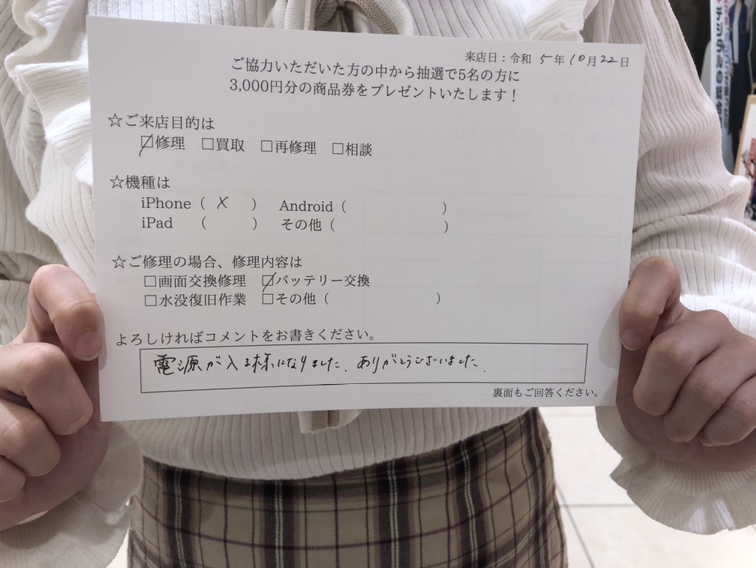 来店日：令和 5年 10月 22日
ご協力いただいた方の中から抽選で5名の方に
3,000円分の商品券をプレゼントいたします！
☆ご来店目的は
☑修理 □買取 □再修理 □相談
☆機種は
iPhone（ X ） Android（ ）
iPad （ ） その他（ ）
☆ご修理の場合、修理内容は
□画面交換修理 ☑バッテリー交換
□水没復旧作業 □その他（ ）
よろしければコメントをお書きください。
電源が入る様になりました。ありがとうございました。
裏面もご回答ください。